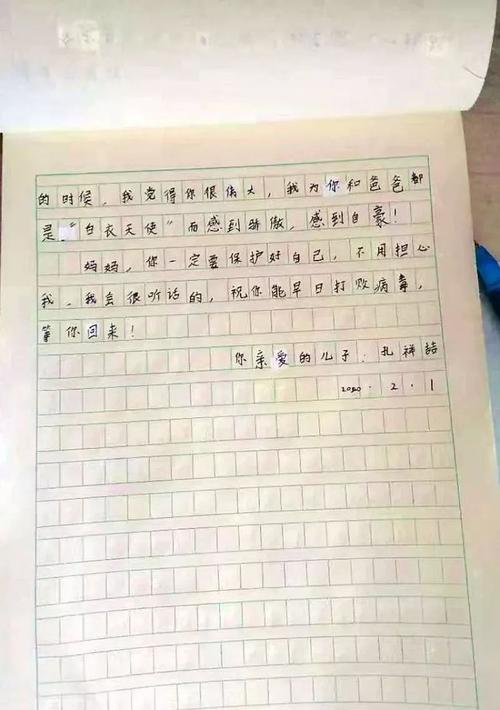 的时候，我觉得你很伟大，我为你和爸爸都
是“白衣天使”而感到骄傲，感到自豪！
妈妈，你一定要保护好自己，不用担心
我，我会很听话的，祝你能早日打败病毒，
等你回来！
你亲爱的儿子：孔祥喆
2020.2.1